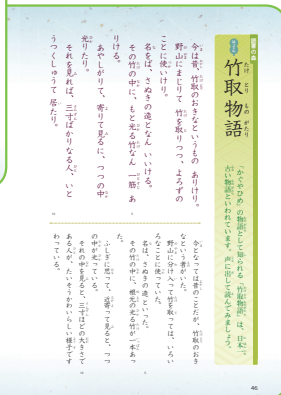 読書の森
竹取物語
たけ とり もの がたり
「かぐやひめ」の物語として知られる「竹取物語」は、日本一
古い物語といわれています。声に出して読んでみましょう。
今は昔、竹取のおきなというもの ありけり。
野山にまじりて 竹を取りつつ、よろずの
ことに使いけり。
名をば、さぬきの造となん いいける。
その竹の中に、もと光る竹なん 一筋 あ
りける。
あやしがりて、寄りて見るに、つつの中
光りたり。
それを見れば、三寸ばかりなる人、いと
うつくしゅうて 居たり。
今となっては昔のことだが、竹取のおき
なという者がいた。
野山に分け入って竹を取っては、いろい
ろなことに使っていた。
名は、さぬきの造といった。
その竹の中に、根元の光る竹が一本あっ
た。
ふしぎに思って、近寄って見ると、つつ
の中が光っている。
それの中を見ると、三寸ほどの大きさで
ある人が、たいそうかわいらしい様子です
わっている。
46